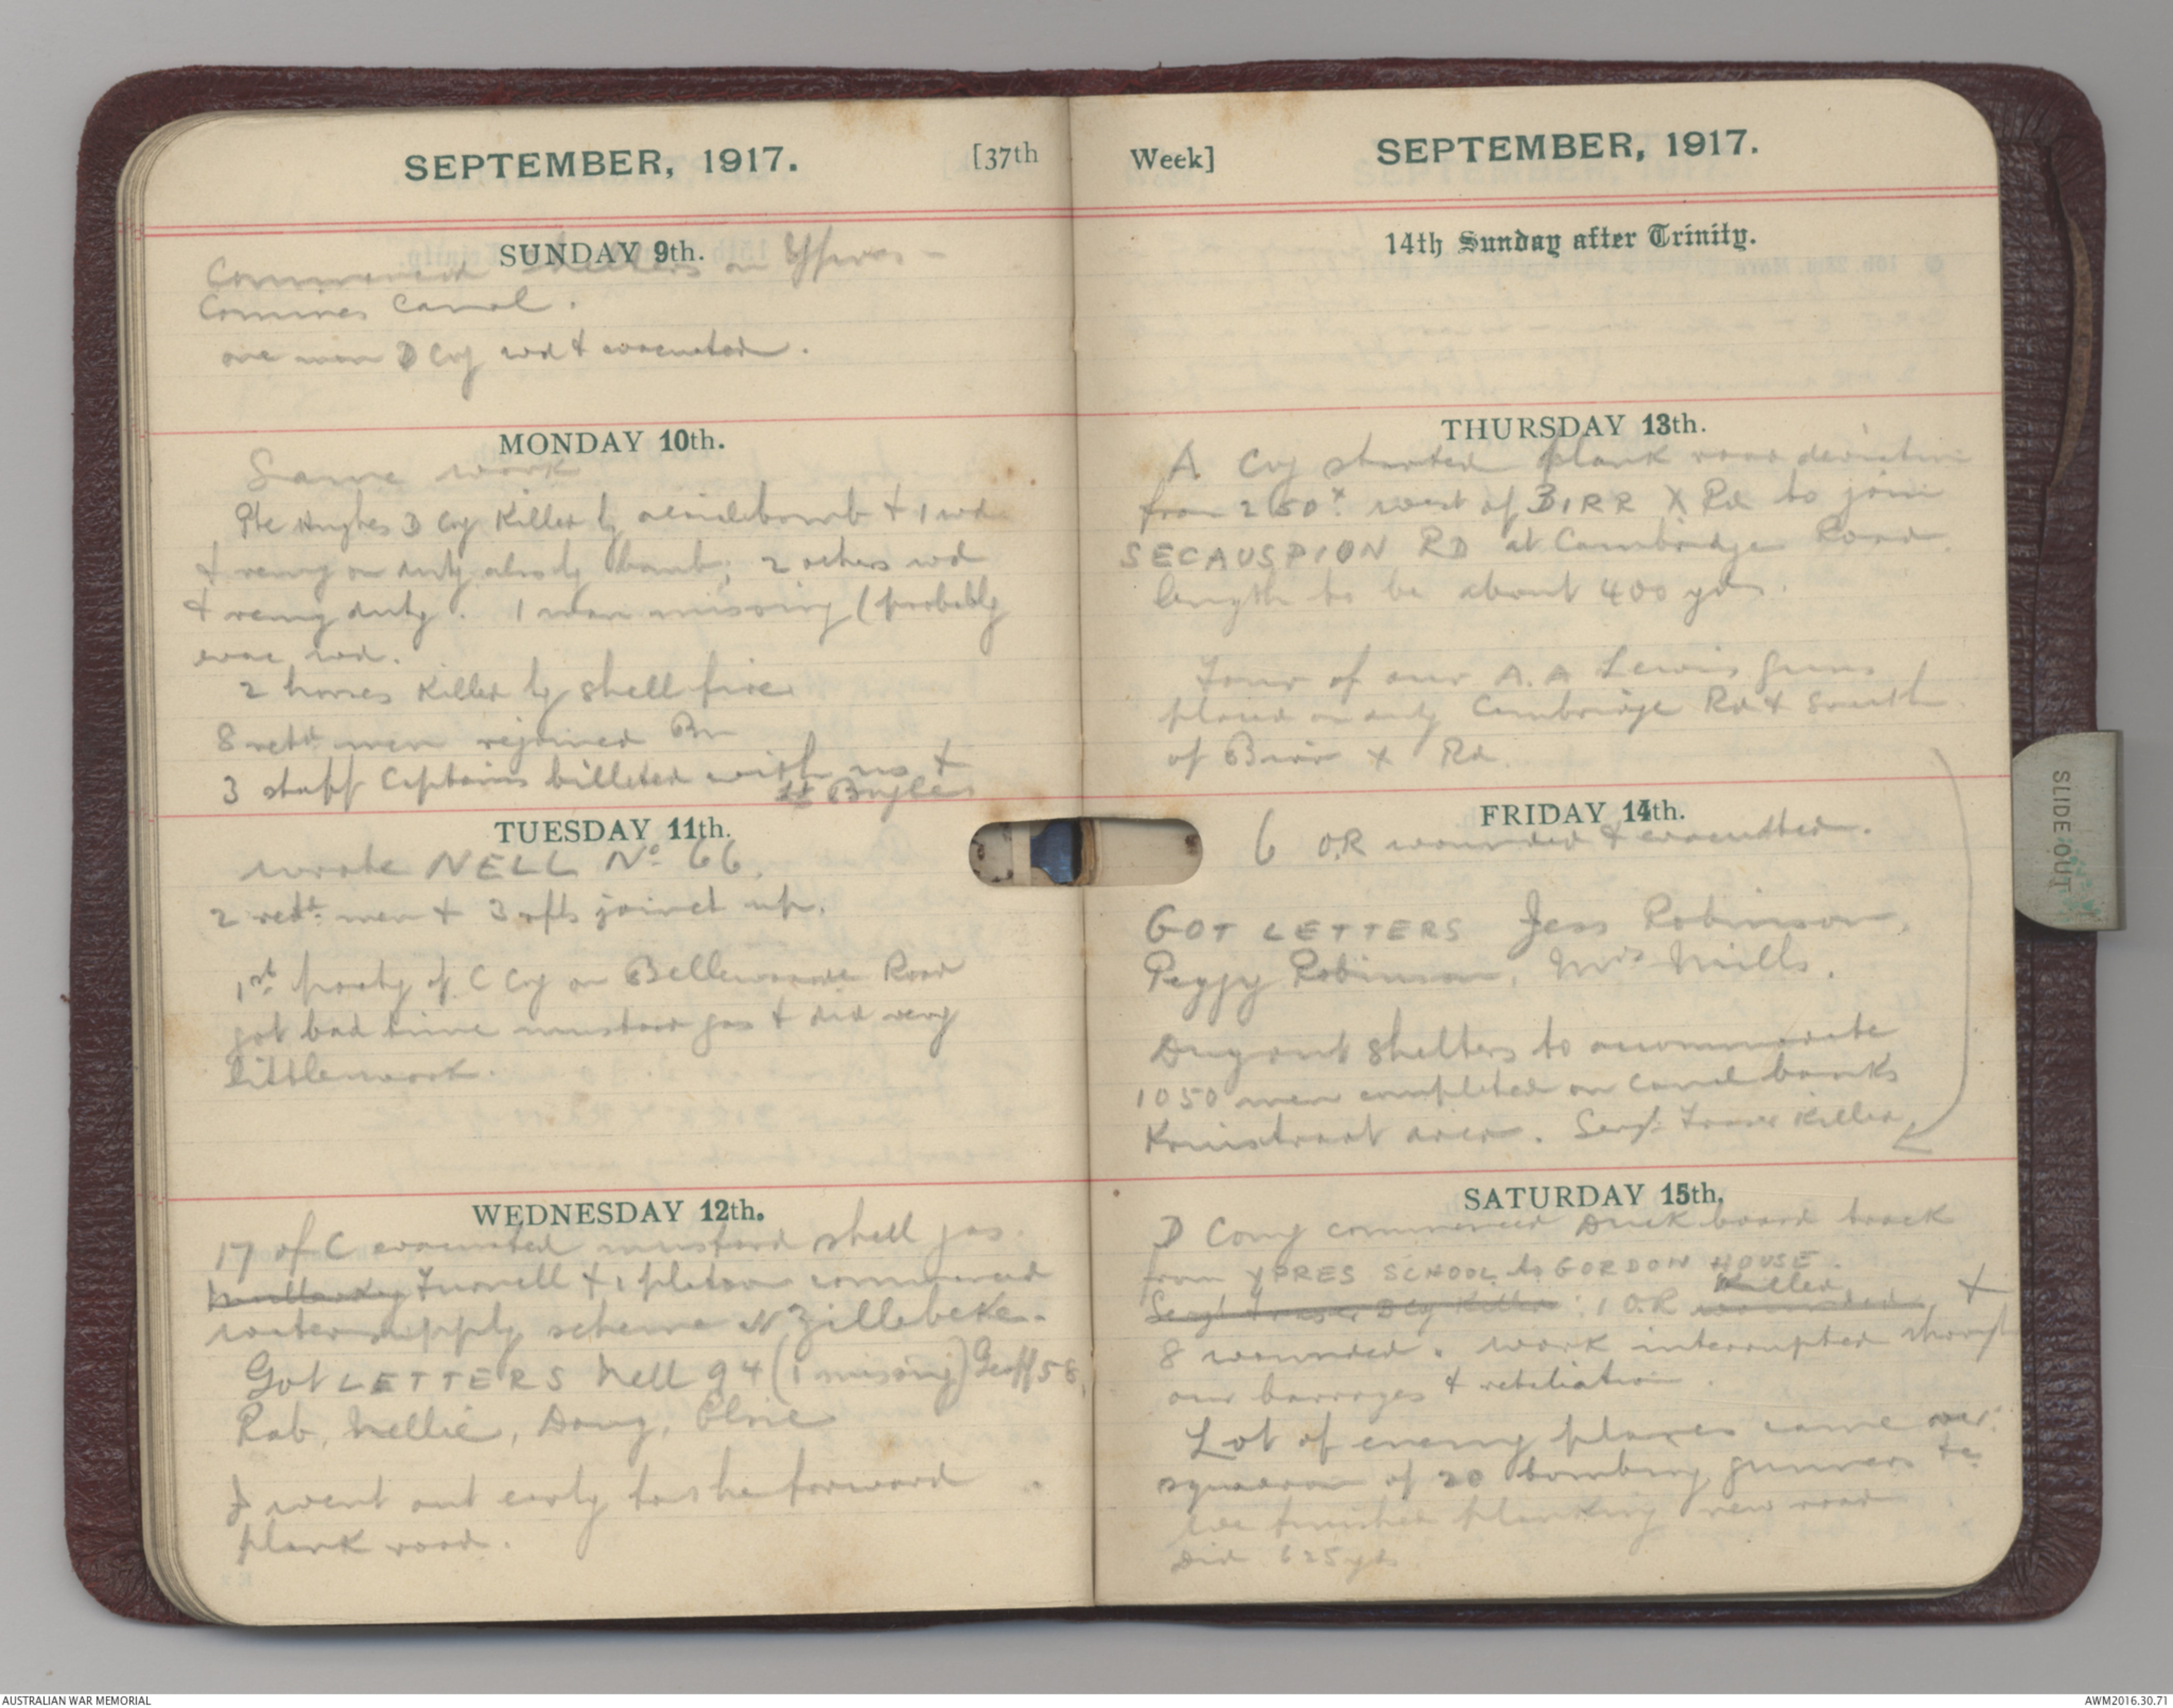 SEPTEMBER, 1917. [37th
SUNDAY 9th.
Commenced shelters on Ypres -
Comines Canal.
one man D Coy wd & evacuated.
MONDAY 10th.
Same work
Pte Hughes D Coy killed by aerial bomb & 1 wd
& remg on duty also by bomb; 2 others wd
& remg duty. 1 man missing (probably
evac wd.
2 horses killed by shell fire.
8 men rejoined Bn
3 staff Captains billeted with us &
Lt
TUESDAY 11th.
wrote NELL No. 66.
2 men & 3 rfts joined up.
1st party of C Coy on Bellewaarde Road
got bad time mustard gas & did very
little work.
WEDNESDAY 12th.
17 of C evacuated mustard shell gas.
& 1 platoon commenced
water supply scheme N Zillebeke.
Got LETTERS Nell 94 (1 missing) Geoff 58,
Rab, Nellie, Doug, Elsie
I went out early to the forward
plank road.
Week] SEPTEMBER, 1917.
14th Sunday after Trinity.
THURSDAY 13th.
A Coy started plank road deviation
from 250x west of BIRR X Rd to join
RD at Cambridge Road
length to be about 400 yds.
Four of our A.A Lewis Guns
placed on duty Cambridge Rd & South
of Birr X Rd.
FRIDAY 14th.
6 O.R wounded & evacuated.
GOT LETTERS Jess Robinson,
Peggy Robinson, Mrs Mills.
Dugout shelters to accommodate
1050 men completed on canal banks
Kruistraat area. Sergt Fraser killed
SATURDAY 15th.
D Comy commenced Duck board track
from YPRES SCHOOL to GORDON HOUSE.
Sergt Fraser D Coy killed: 1 O.R wounded killed &
8 wounded. work interrupted through
our barrages & retaliation.
Lot of enemy planes came over.
squadron of 20 bombing gunners &c
We finished planking new road
Did 625 yds
SLIDE OUT
AUSTRALIAN WAR MEMORIAL
AWM2016.30.71